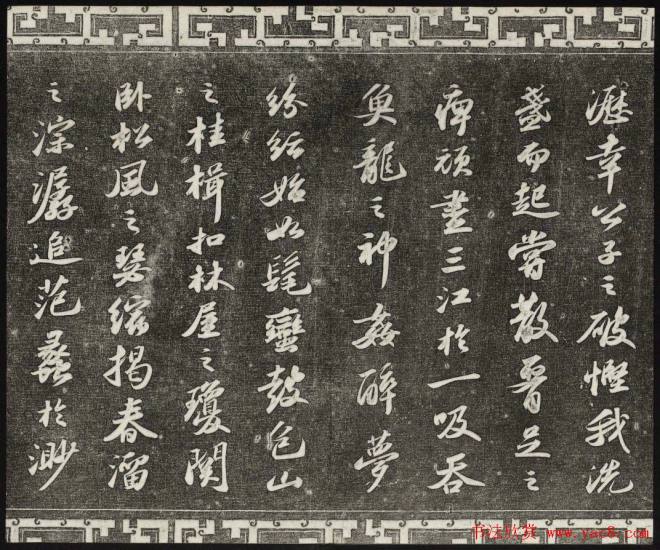 瀝幸公子之破慳我洗
盞而起嘗散腰足之
痺頑盡三江於一吸吞
魚龍之神姦醉夢
紛紜始如髦蠻鼓包山
之桂楫扣林屋之瓊關
臥松風之瑟縮揭春溜
之淙潺追范蠡於渺
书法欣赏 www.yac8.com